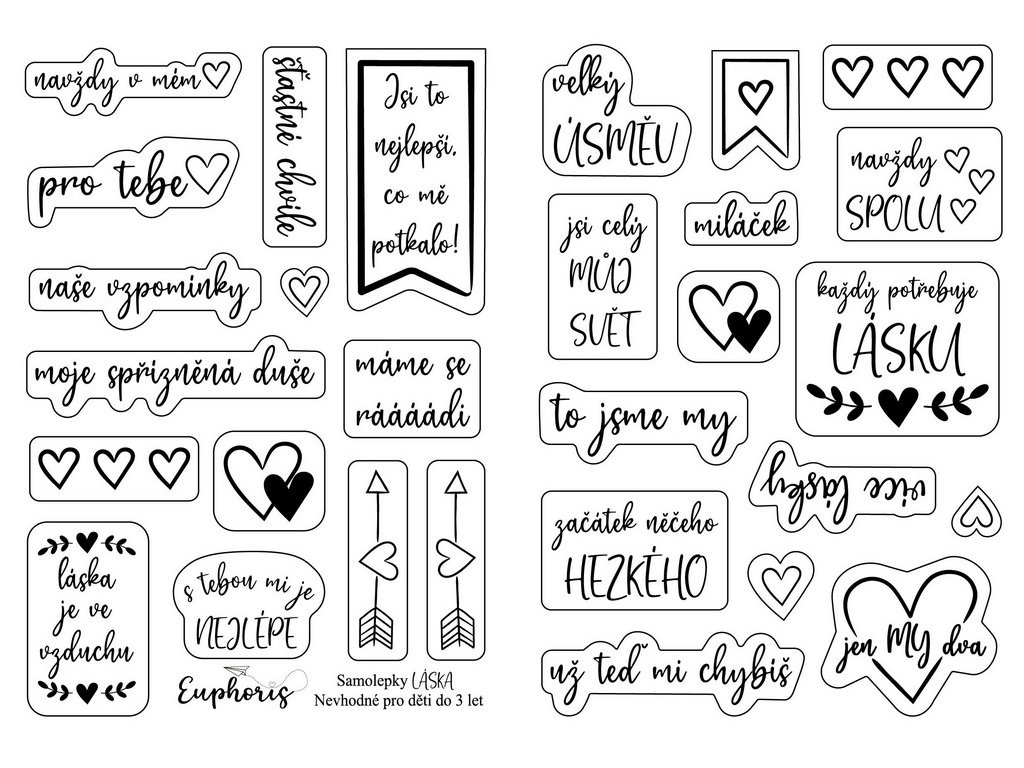 navždy v mém
šťastné chvíle
Jsi to
nejlepší,
co mě
potkalo!
pro tebe
naše vzpomínky
moje spřízněná duše
máme se
ráááádi
láska
je ve
vzduchu
s tebou mi je
NEJLÉPE
Euphoris
Samolepky LÁSKA
Nevhodné pro děti do 3 let
velký
ÚSMĚV
navždy
SPOLU
jsi celý
MŮJ
SVĚT
miláček
každý potřebuje
LÁSKU
to jsme my
více lásky
začátek něčeho
HEZKÉHO
jen MY dva
už teď mi chybíš